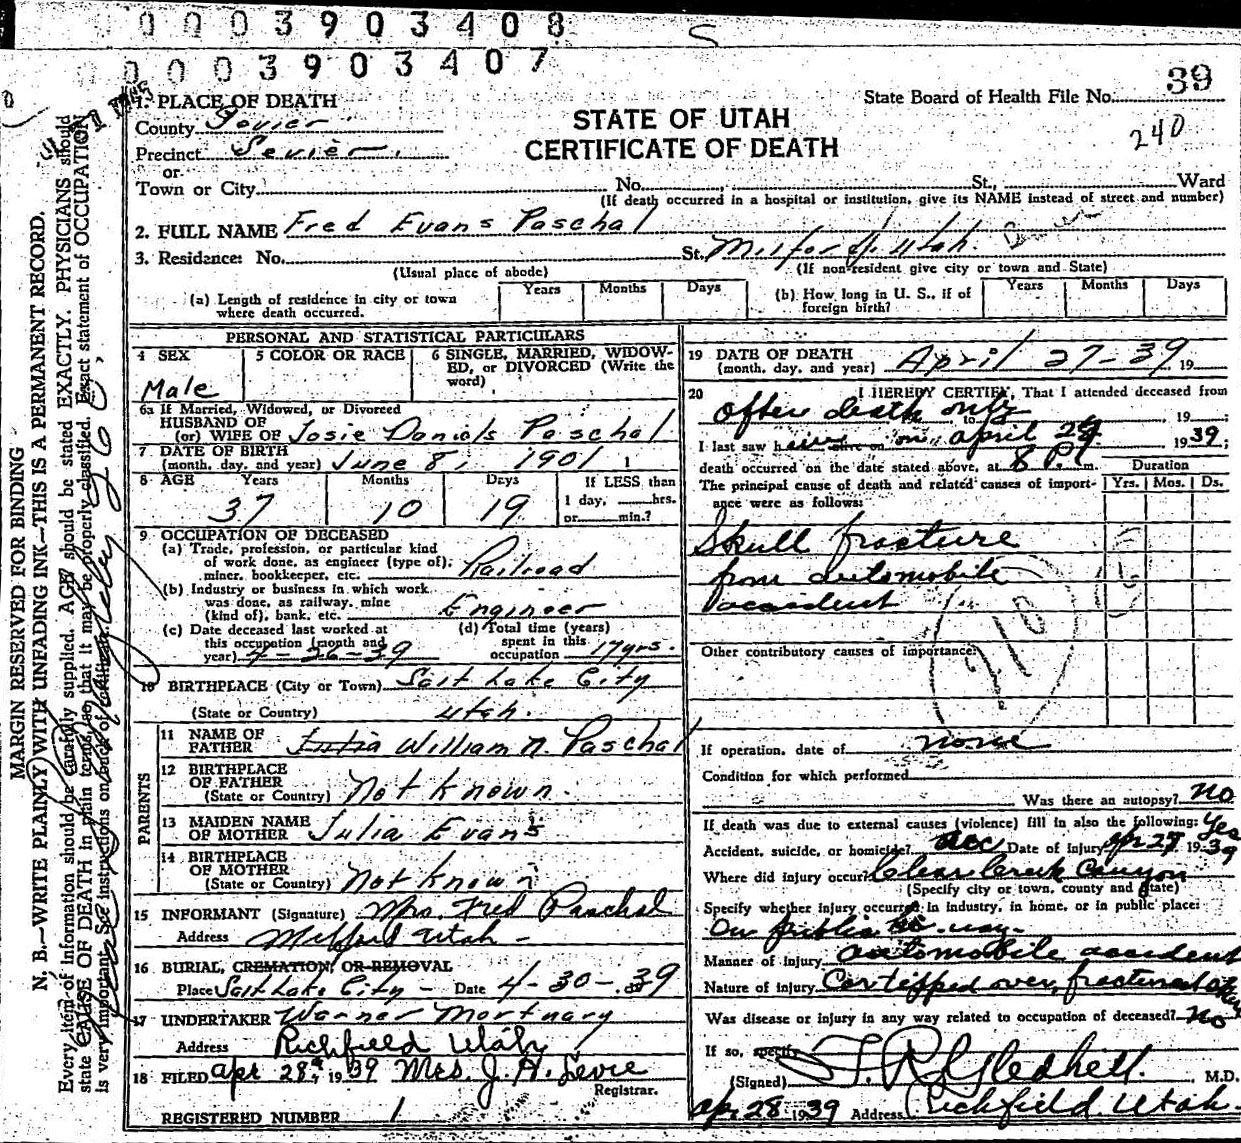 0003903408
0003903407
39
State Board of Health File No.
240
1. PLACE OF DEATH
County Sevier
STATE OF UTAH
Precinct Sevier.
CERTIFICATE OF DEATH
or
Town or City No. St., Ward
(If death occurred in a hospital or institution, give its NAME instead of street and number)
2. FULL NAME Fred Evans Paschal
3. Residence: No. St. Milford, Utah.
(Usual place of abode) (If non-resident give city or town and State)
(a) Length of residence in city or town where death occurred. Years Months Days
(b) How long in U. S., if of foreign birth? Years Months Days
PERSONAL AND STATISTICAL PARTICULARS
4 SEX
Male
5 COLOR OR RACE
6 SINGLE, MARRIED, WIDOW-
ED, or DIVORCED (Write the
word)
6a If Married, Widowed, or Divorced
HUSBAND OF
(or) WIFE OF Josie Daniels Paschal
7 DATE OF BIRTH
(month, day, and year) June 8, 1901 1
8 AGE Years Months Days If LESS than
1 day, hrs.
or min.?
37 10 19
9 OCCUPATION OF DECEASED
(a) Trade, profession, or particular kind
of work done, as engineer (type of),
miner, bookkeeper, etc. Railroad
(b) Industry or business in which work
was done, as railway, mine
(kind of), bank, etc. Engineer
(c) Date deceased last worked at
this occupation (month and
year) 4-26-39
(d) Total time (years)
spent in this
occupation 17 yrs.
10 BIRTHPLACE (City or Town) Salt Lake City
(State or Country) Utah.
PARENTS
11 NAME OF
FATHER William N. Paschal
12 BIRTHPLACE
OF FATHER
(State or Country) Not Known.
13 MAIDEN NAME
OF MOTHER Julia Evans
14 BIRTHPLACE
OF MOTHER
(State or Country) Not Known
15 INFORMANT (Signature) Mrs. Fred Paschal
Address Milford Utah -
16 BURIAL, CREMATION, OR REMOVAL
Place Salt Lake City - Date 4-30-39
17 UNDERTAKER Warner Mortuary
Address Richfield Utah
18 FILED Apr 28, 1939 Mrs. J. A.
Registrar.
REGISTERED NUMBER 1
19 DATE OF DEATH
(month, day, and year) April 27-39 19
20 I HEREBY CERTIFY, That I attended deceased from
after death only to 19 ;
I last saw h alive on on April 1939;
death occurred on the date stated above, at 8 P. m.
The principal cause of death and related causes of import-
ance were as follows:
Duration
Yrs. Mos. Ds.
Skull fracture
from automobile
accident
210
Other contributory causes of importance:
If operation, date of none
Condition for which performed
Was there an autopsy? no
If death was due to external causes (violence) fill in also the following: Yes
Accident, suicide, or homicide? acc Date of injury Apr 27 1939
Where did injury occur? Clear Creek Canyon
(Specify city or town, county and State)
Specify whether injury occurred in industry, in home, or in public place:
On public hi-way-
Manner of injury automobile accident
Nature of injury Car tipped over, fractured
Was disease or injury in any way related to occupation of deceased? No
If so, specify
(Signed) T. R. Gledhill. , M.D.
Apr 28 1939 Address Richfield Utah.
MARGIN RESERVED FOR BINDING
N. B.—WRITE PLAINLY WITH UNFADING INK—THIS IS A PERMANENT RECORD.
Every item of information should be carefully supplied. AGE should be stated EXACTLY. PHYSICIANS should
state CAUSE OF DEATH in plain terms, so that it may be properly classified. Exact statement of OCCUPATION
is very important. See instructions on back of certificate.